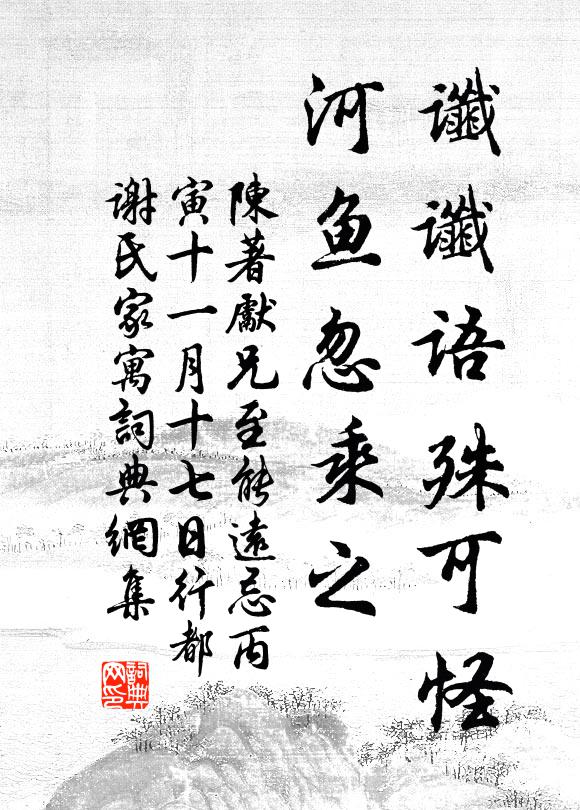 讖讖語殊可怪
河魚忽乘之
陳著獻兄至能遠忌丙
寅十一月十七日行都
謝氏家寓詞典網集
詞典网印